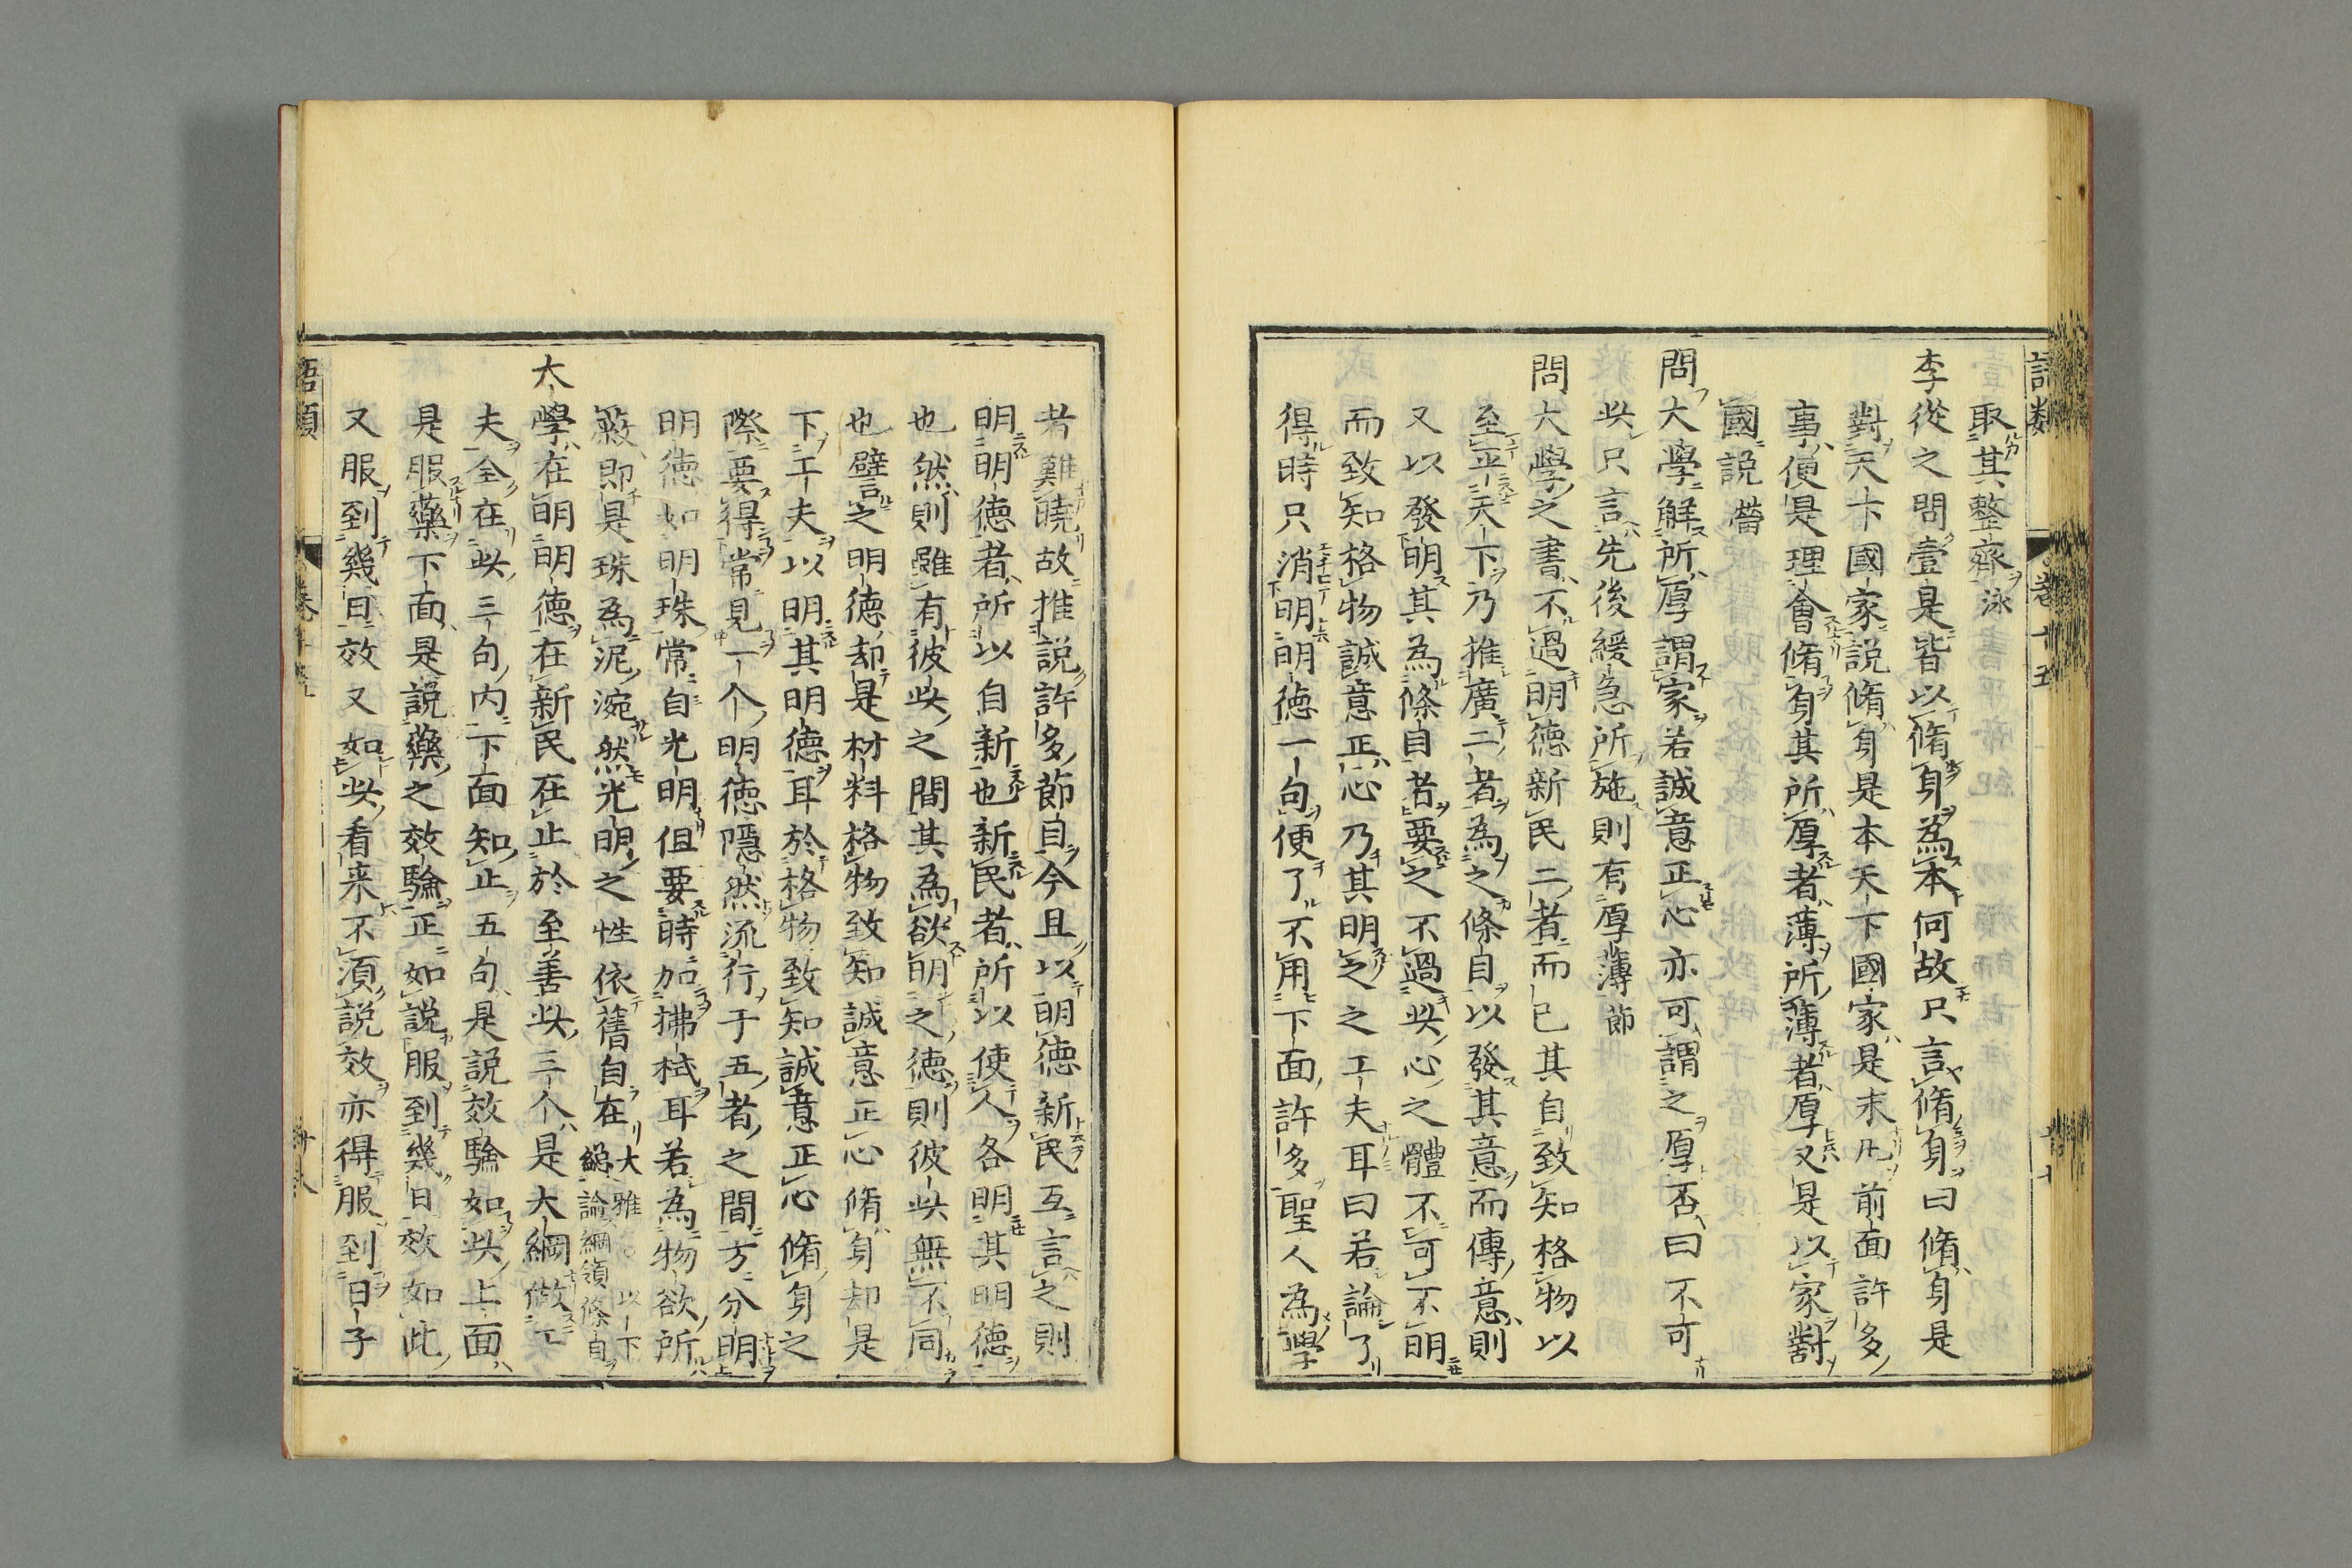 取其整齊泳
李從之問壹是皆以脩身為本何故只言脩身曰脩身是
對天下國家説脩身是本天下國家是末凡前面許多
事便是理會脩身其所厚者薄所薄者厚又是以家對
國説㽦
問大學解所厚謂家若誠意正心亦可謂之厚否曰不可
此只言先後緩急所施則有厚薄節
問大學之書不過明徳新民二者而已其自致知格物以
至平天下乃推廣二者為之條自以發其意而傳意則
又以發明其為條自者要之不過此心之體不可不明
而致知格物誠意正心乃其明之之工夫耳曰若論了
得時只消明明徳一句便了不用下面許多聖人為學
者難曉故推説許多節自今且以明徳新民互言之則
明明徳者所以自新也新民者所以使人各明其明徳
也然則雖有彼此之間其為欲明之徳則彼此無不同
也譬之明徳却是材料格物致知誠意正心脩身却是
下工夫以明其明徳耳於格物致知誠意正心脩身之
際要得常見一个明徳隠然流行于五者之間方分明
明徳如明珠常自光明但要時加拂拭耳若為物欲所
蔽即是珠為泥涴然光明之性依舊自在大雅○以下
緫論綱領條自
大學在明明徳在新民在止於至善此三个是大綱做工
夫全在此三句内下面知止五句是説效驗如此上面
是服藥下面是説藥之效驗正如説服到幾日效如此
又服到幾日效又如此看来不須説效亦得服到日子
語類
卷十五
語類
卷十五